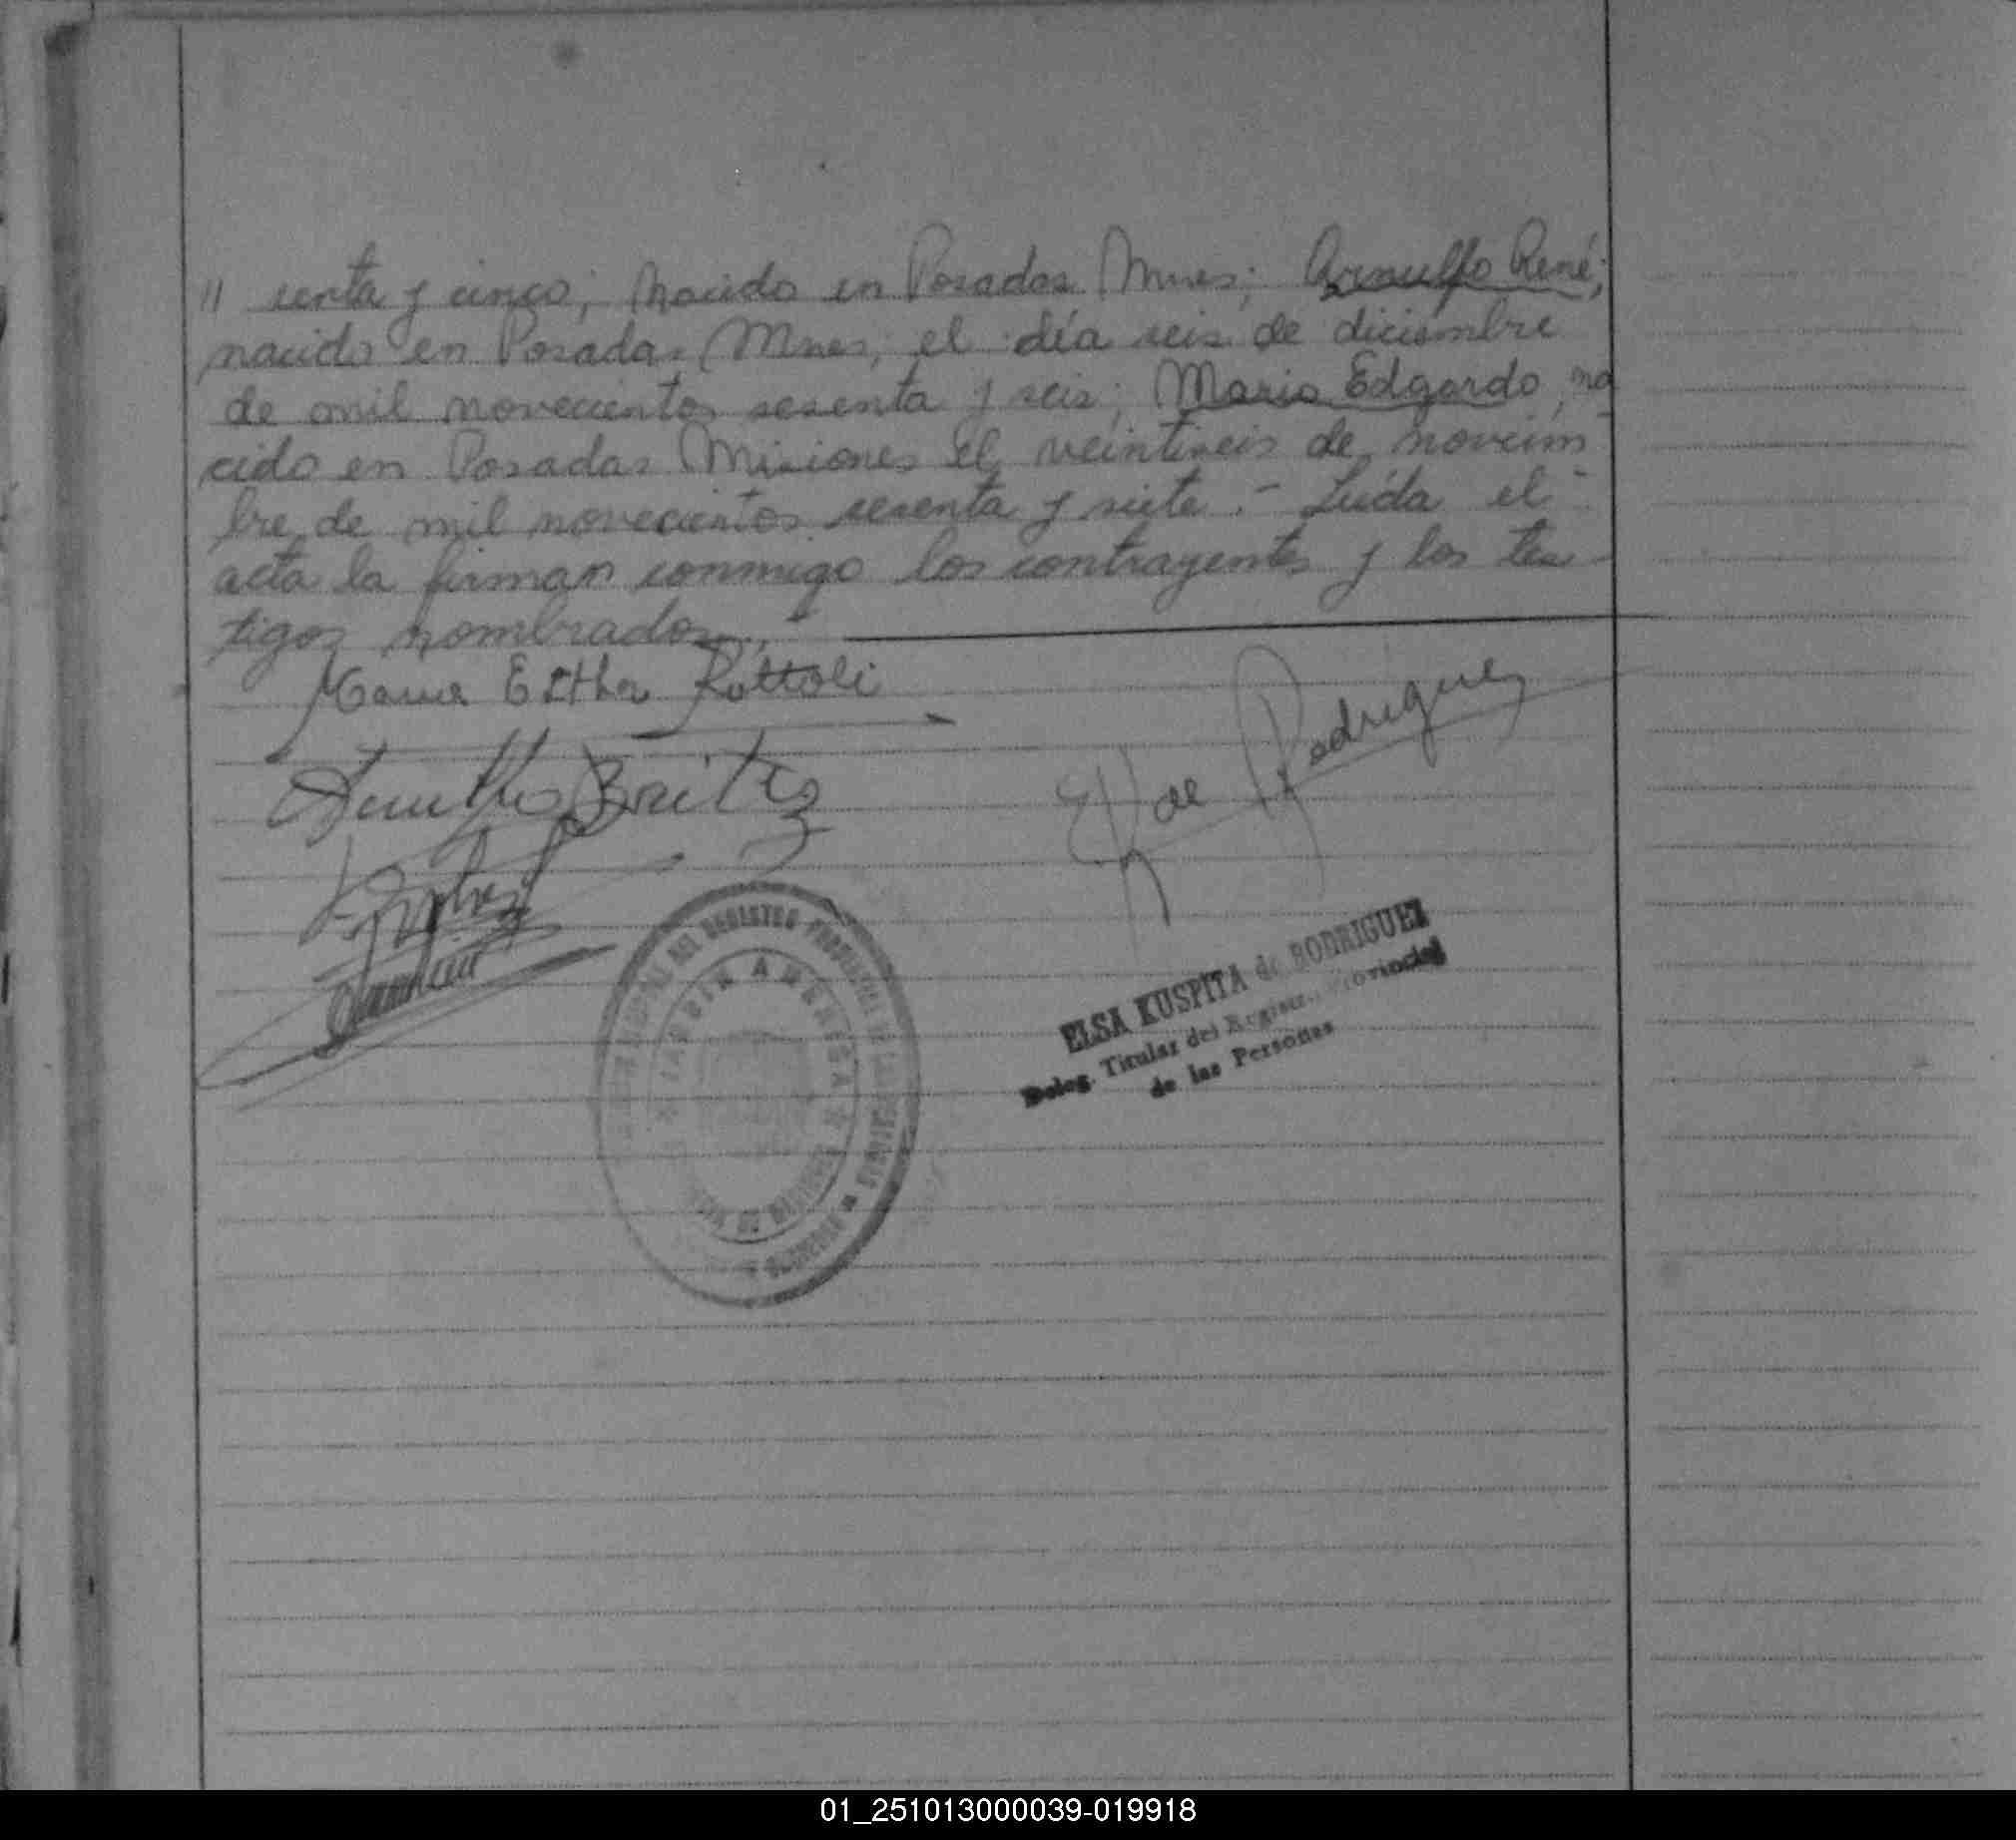 " senta y cinco; nacido en Posadas Mnes; Arnulfo René;
nacido en Posadas Mnes, el día seis de diciembre
de mil novecientos sesenta y seis; Mario Edgardo, na
cido en Posadas Misiones el veintiseis de noviem
bre de mil novecientos sesenta y siete.- Leída el
acta la firman conmigo los contrayentes y los tes
tigos nombrados.,
Maria Esther Rottoli
Arnulfo Britez
E K de Rodriguez
DEL REGISTRO PROVINCIAL DE LAS PERSONAS
JARDIN AMERICA
DE MISIONES
ELSA KUSPITA de RODRIGUEZ
Deleg. Titular del Registro Provincial
de las Personas
01_251013000039-019918